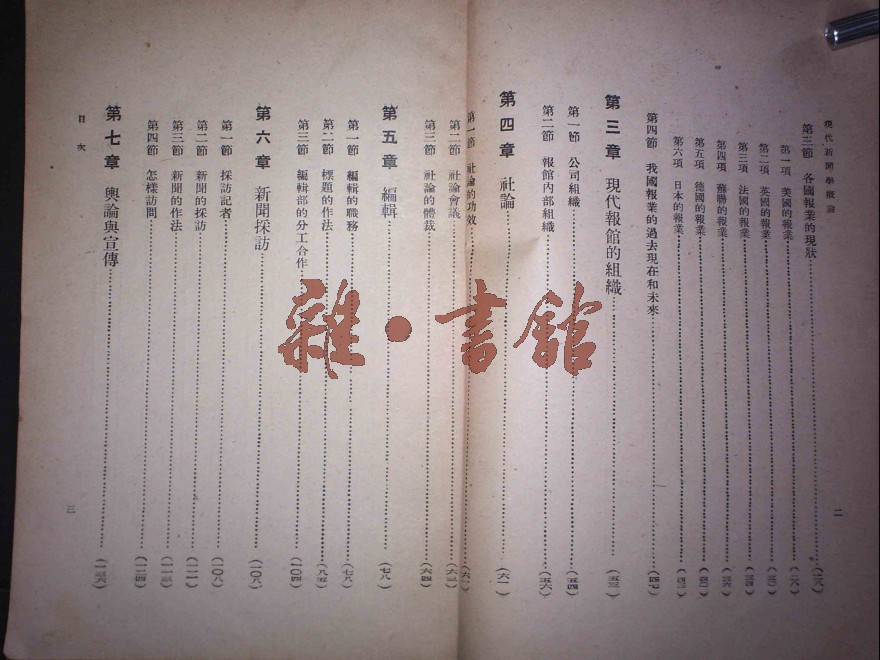 現代新聞學概論
二
第三節 各國報業的現狀
第一項 美國的報業
第二項 英國的報業
第三項 法國的報業
第四項 蘇聯的報業
第五項 德國的報業
第六項 日本的報業
第四節 我國報業的過去現在和未來 (四七)
第三章 現代報館的組織 (五三)
第一節 公司組織 (五四)
第二節 報館內部組織 (五六)
第四章 社論 (六一)
第一節 社論的功效 (六一)
第二節 社論會議 (六三)
第三節 社論的體裁 (六四)
第五章 編輯 (七八)
第一節 編輯的職務 (七八)
第二節 標題的作法 (八五)
第三節 編輯部的分工合作 (一〇四)
第六章 新聞採訪 (一〇六)
第一節 採訪記者 (一〇六)
第二節 新聞的採訪 (一一一)
第三節 新聞的作法
第四節 怎樣訪問
第七章 輿論與宣傳
目次
三
雜·書館